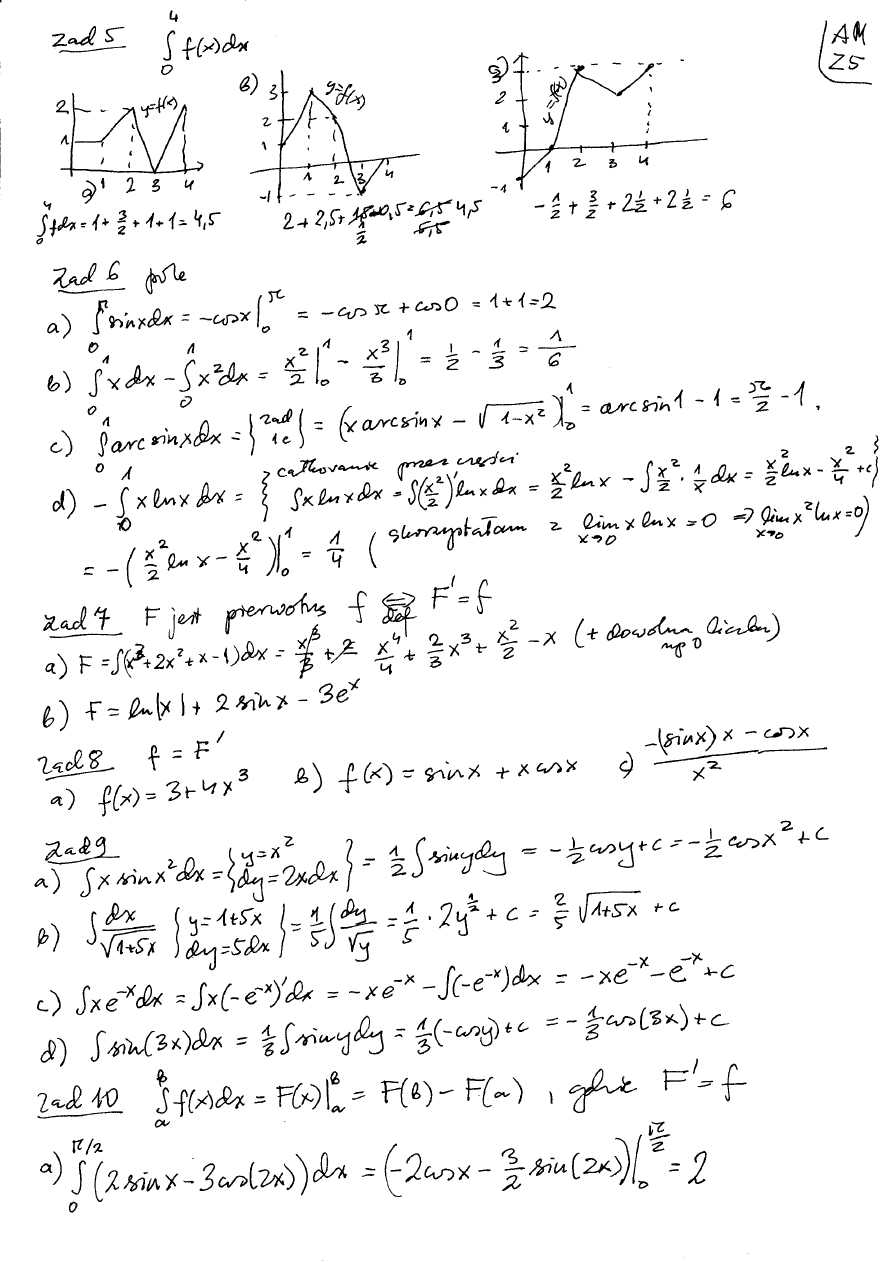 AM
Z5
Zad 5 ∫₀⁴ f(x)dx
a) y=f(x) 2 1 1 2 3 4
b) y=f(x) 3 2 1 -1 1 2 3 4
c) y=f(x) 3 2 1 -1 1 2 3 4
∫₀⁴ fdx = 1 + 3/2 + 1 + 1 = 4,5
2 + 2,5 + 1/2 - 0,5 = 4,5
-1/2 + 3/2 + 2 1/2 + 2 1/2 = 6
Zad 6 pole
a) ∫₀^π sinxdx = -cosx|₀^π = -cos π + cos0 = 1+1=2
b) ∫₀¹ x dx - ∫₀¹ x²dx = x²/2|₀¹ - x³/3|₀¹ = 1/2 - 1/3 = 1/6
c) ∫₀¹ arc sinxdx = {zad 1e} = (x arcsinx - √(1-x²))|₀¹ = arcsin1 - 1 = π/2 - 1.
d) -∫₀¹ x lnx dx = { całkowanie przez części ∫x lnx dx = ∫(x²/2)' lnx dx = x²/2 lnx - ∫x²/2 · 1/x dx = x²/2 lnx - x²/4 + c }
= -(x²/2 ln x - x²/4)|₀¹ = 1/4 (skorzystałam z lim x→0 x lnx = 0 ⇒ lim x→0 x² lnx = 0)
Zad 7 F jest pierwotną f ⇔ def F' = f
a) F = ∫(x³+2x²+x-1)dx = x⁴/4 + 2/3 x³ + x²/2 - x (+ dowolna liczba) np 0
b) F = ln|x| + 2 sin x - 3eˣ
Zad 8 f = F'
a) f(x) = 3+4x³ b) f(x) = sinx + x cosx c) (-(sinx) x - cosx)/x²
Zad 9
a) ∫x sinx²dx = {y=x² dy=2xdx} = 1/2 ∫sinydy = -1/2 cosy+c = -1/2 cosx²+c
b) ∫dx/√(1+5x) {y=1+5x dy=5dx} = 1/5 ∫dy/√y = 1/5 · 2y^(1/2) + c = 2/5 √(1+5x) + c
c) ∫xe⁻ˣdx = ∫x(-e⁻ˣ)'dx = -xe⁻ˣ - ∫(-e⁻ˣ)dx = -xe⁻ˣ - e⁻ˣ + c
d) ∫sin(3x)dx = 1/3 ∫sinydy = 1/3(-cosy)+c = -1/3 cos(3x)+c
Zad 10 ∫ₐᵇ f(x)dx = F(x)|ₐᵇ = F(b) - F(a), gdzie F' = f
a) ∫₀^(π/2) (2sinx - 3cos(2x))dx = (-2cosx - 3/2 sin(2x))|₀^(π/2) = 2